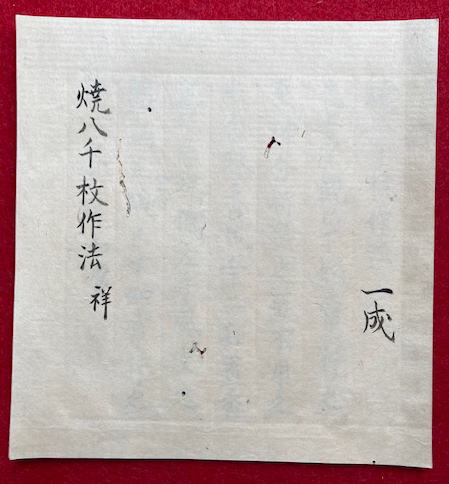 一成
焼八千枚作法 祥